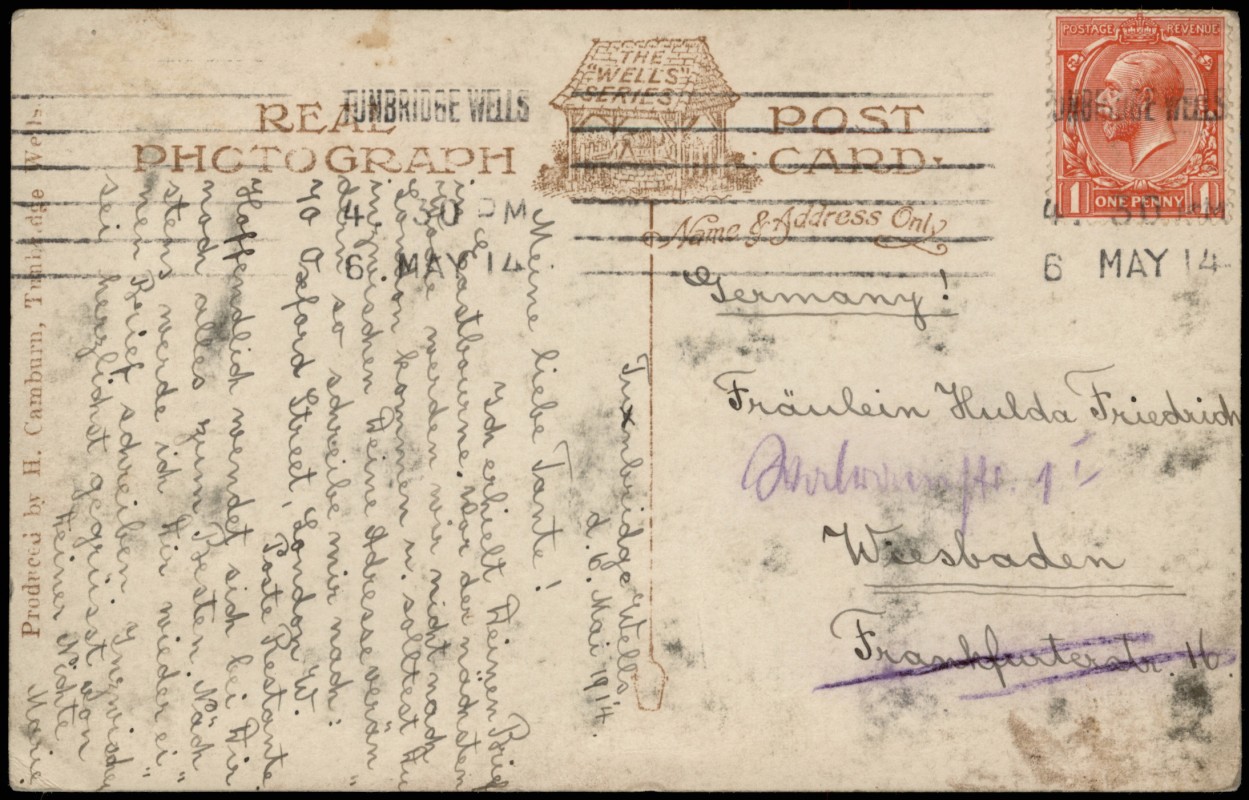 THE
"WELLS"
SERIES
REAL
PHOTOGRAPH
POST
CARD.
Name & Address Only
POSTAGE REVENUE
1 ONE PENNY 1
TUNBRIDGE WELLS
4 30 PM
6 MAY 14
TUNBRIDGE WELLS
4 30 PM
6 MAY 14
Produced by H. Camburn, Tunbridge Wells.
Tunbridge Wells
d. 6. Mai 1914.
Meine liebe Tante!
Ich erhielt Deinen Brief
in Eastbourne. Vor der nächsten
werden wir nicht nach
London kommen u. solltest Du
inzwischen Deine Adresse verän"
dern so schreibe mir nach:
70 Oxford Street, London W.
Poste Restante
Hoffendlich wendet sich bei Dir
noch alles zum Besten. Näch"
stens werde ich Dir wieder ei"
nen Brief schreiben. Inzwischen
sei herzlichst gegrüsst von
Deiner Nichte
Marie
Germany!
Fräulein Hulda Friedrich
Wiesbaden
Frankfurterstr. 16.